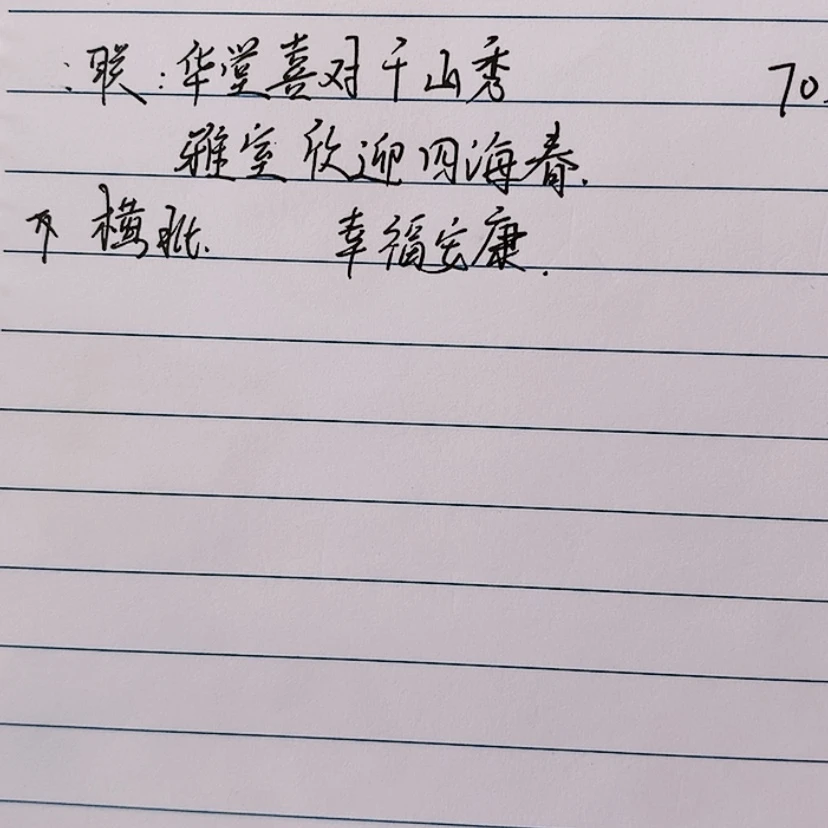 :联:华堂喜对千山秀 70
雅室欣迎四海春.
横批. 幸福安康.